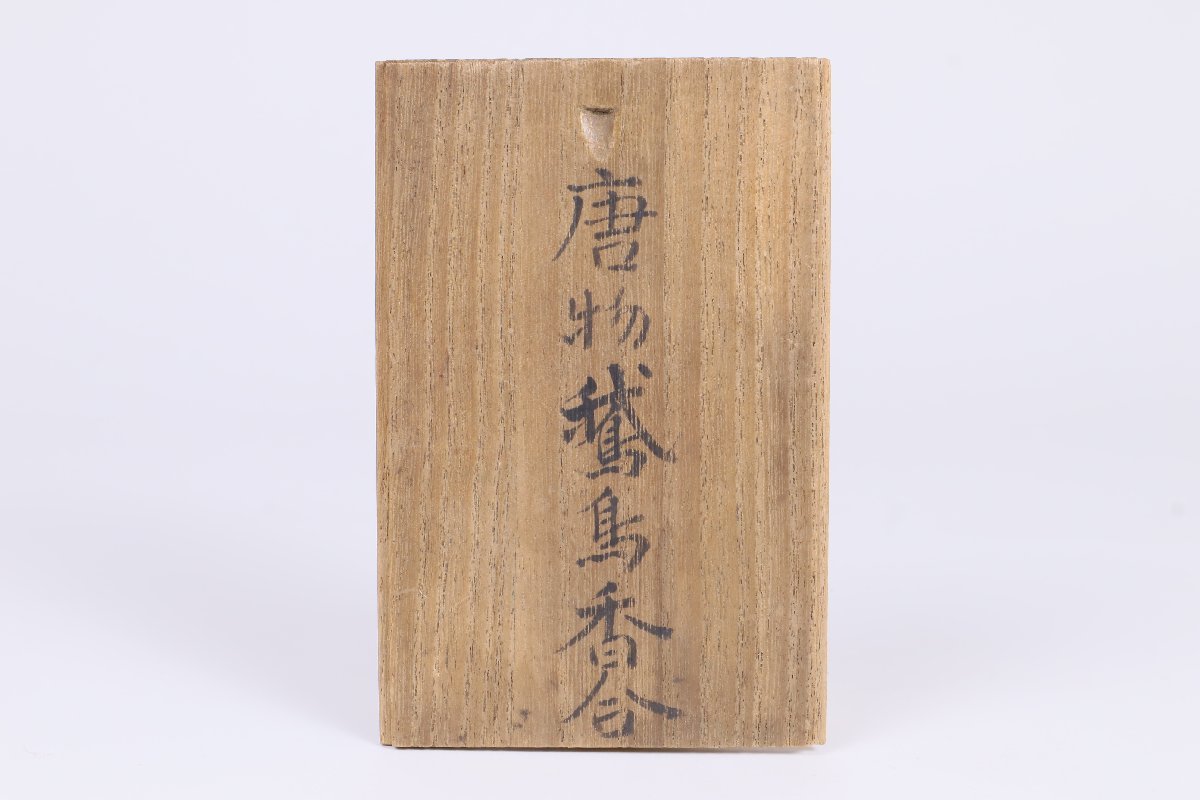 唐物鵞鳥香合